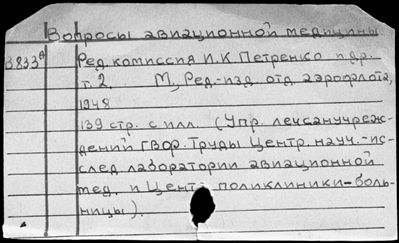 Вопросы авиационной медицины
3833а Ред. комиссия И.К Петренко и др.
т. 2. М, Ред-изд отд аэрофлота,
1948
139 стр. с илл. (Упр лечсанучреж-
дений ГВФ. Труды Центр. науч.-ис-
след лаборатории авиационной
мед. и Центр поликлиники-боль-
ницы).